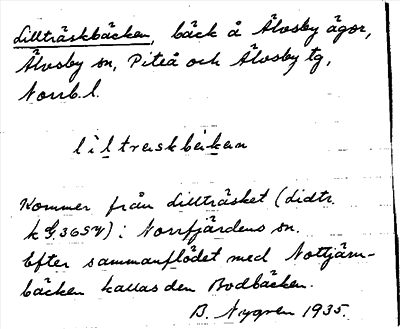 Lillträskbäcken, bäck å Älvsby ägor,
Älvsby sn, Piteå och Älvsby tg,
Norrb. l.
liltreskbekən
Kommer från Lillträsket (lidtr.
k 365 ) i Norrfjärdens sn.
Efter sammanflödet med Nottjärn-
bäcken kallas den Bodbäcken.
B. Nygren 1935.